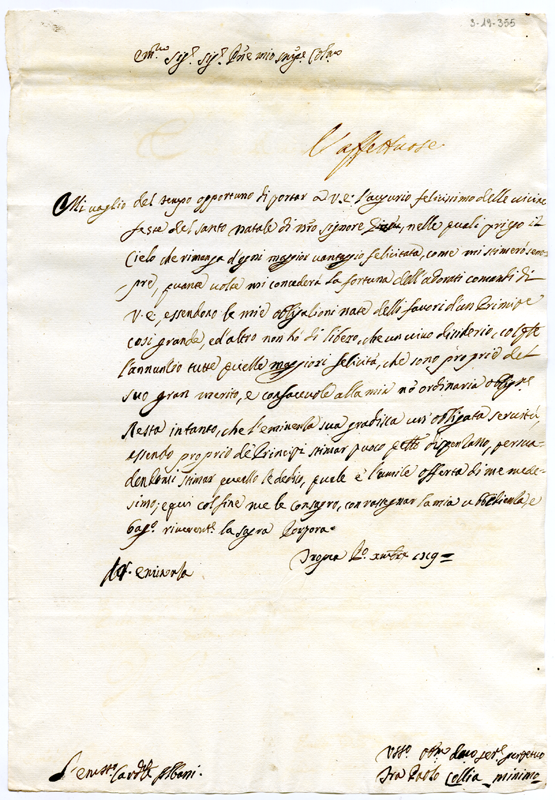 3-19-355
Sig.r Sig.r Pñe mio sing.r Col.mo
L'affettuose
Mi vaglio del tempo opportuno di portar a V.E. l'augurio felicissimo delle vicine
feste del santo natale di nr̃o signore nelle quali priego il
Cielo che rimanga d'ogni maggior vantaggio felicitata, come mi stimerò sem-
pre, quanta volta mi concederà la fortuna dell'adorati comandi di
V.E. essendono le mie obligationi nate delli favori d'un Principe
così grande, ed altro non hò di libero, che un vivo desiderio, col q.le
l'annuntio tutte quelle maggiori felicità, che sono proprie del
suo gran merito, e confacevole alla mia nõ ordinaria
Resta intanto, che l'eminenza sua gradisca un' obligata servitù,
essendo proprio de Principi stimar puoco dispensano, persua-
dendomi stimar quello le devo, quale è l'umile offerta di me mede-
simo; e qui col fine me le consagro, con rassegnar la mia e
bagi. riverente la sagra Porpora.
P.o Xmbre 1719
eminenza
Card.le Albani.
Vss.o ser.e perpetuo
Fra Paolo Collia minimo